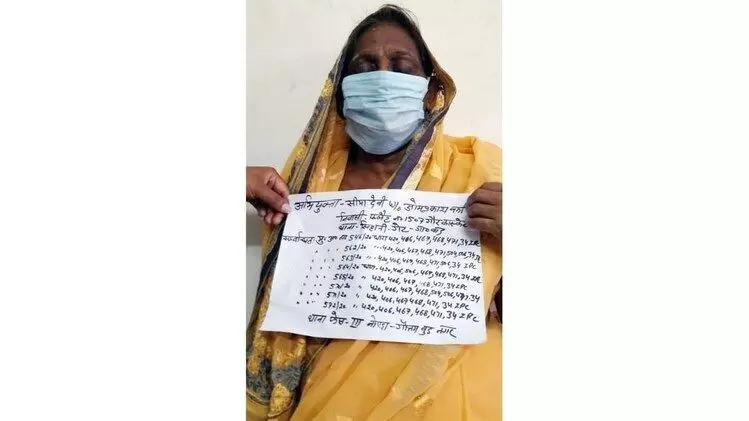 अभियुक्ता - सोमा देवी w/o ओमप्रकाश
निवासी- फ्लैट no 1507 गौर
थाना- सिहानी गेट- गा०बाद
मु० अ० सं० 546/20 धारा 420,406,467,468,471,34 IPC
" " " 562/20 " 420,406,467,468,471,504,506,34 IPC
" " " 563/20 " 420,406,467,468,471,506,34 IPC
" " " 564/20 धारा 420,406,506,467,468,471,34 IPC
" " " 565/20 " 420,406,467,468,471,34 IPC
" " " 570/20 " 420,406,467,468,504,506,471,34
" " " 571/20 " 420,406,467,468,471,34 IPC
" " " 572/20 " 420,406,467,468,471,34 IPC
थाना फेस-III नोएडा- गौतम बुद्ध नगर